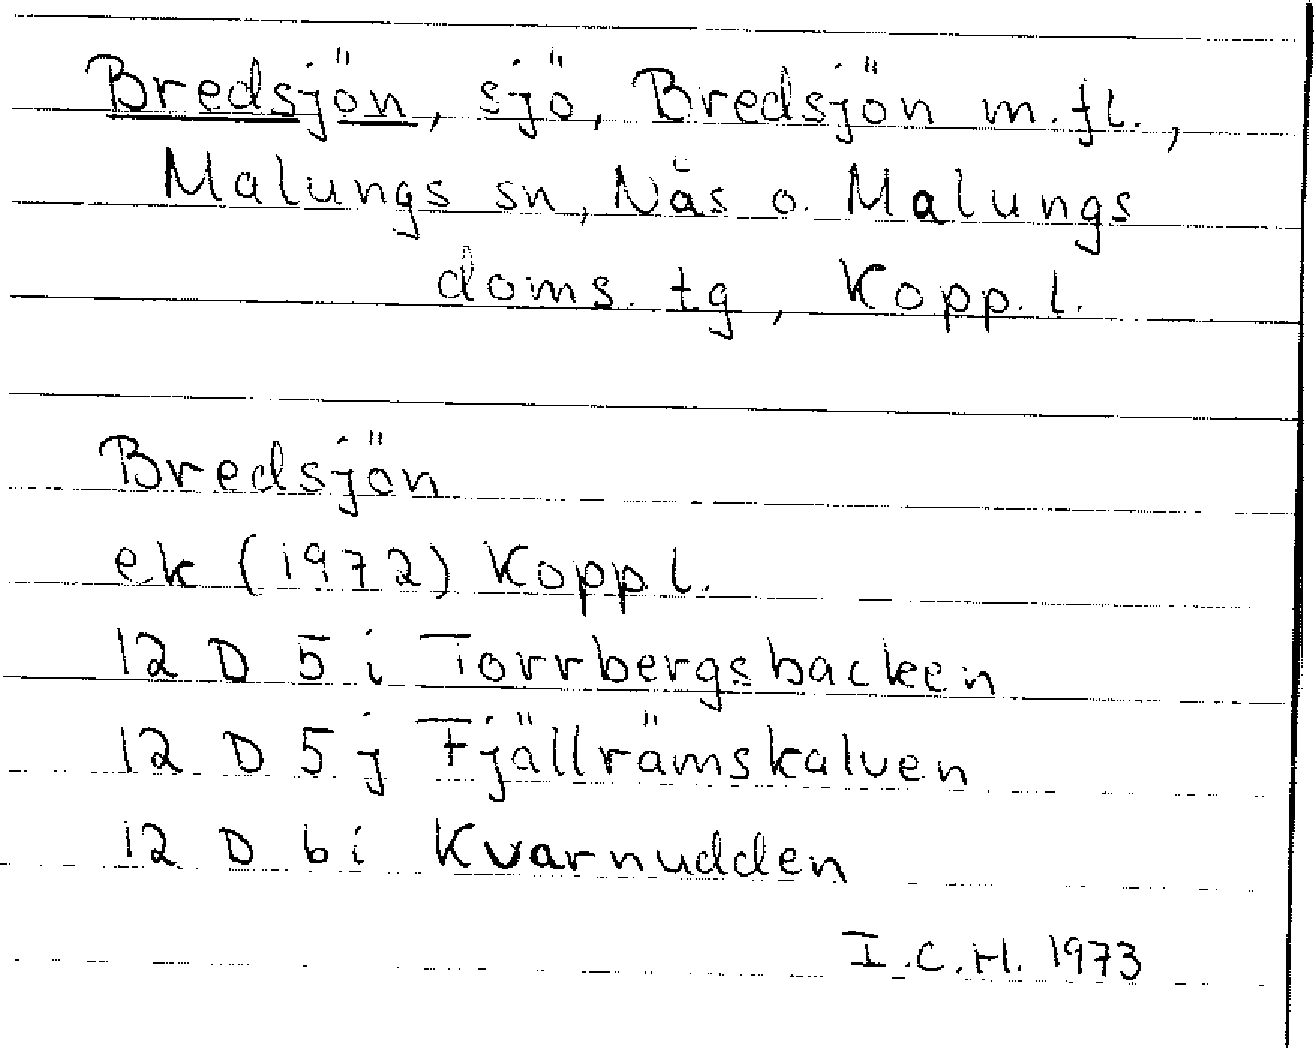 Bredsjön, sjö, Bredsjön m.fl.,
Malungs sn, Näs o. Malungs
doms. tg, Kopp. l.
Bredsjön
ek (1972) Kopp l.
12 D 5 i Torrbergsbacken
12 D 5 j Fjällrämskalven
12 D 6 i Kvarnudden
I.C.H. 1973